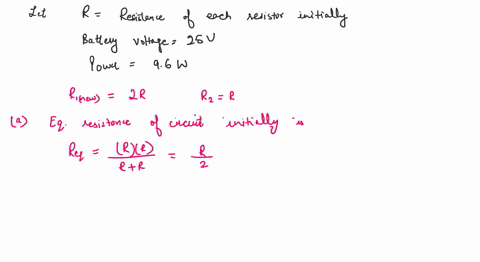 Let R = Resistance of each resistor initially
Battery voltage = 25 V
Power = 9.6 W
R1(new) = 2R R2 = R
(a) Eq. resistance of circuit initially is
Req = (R)(R) / R+R = R / 2